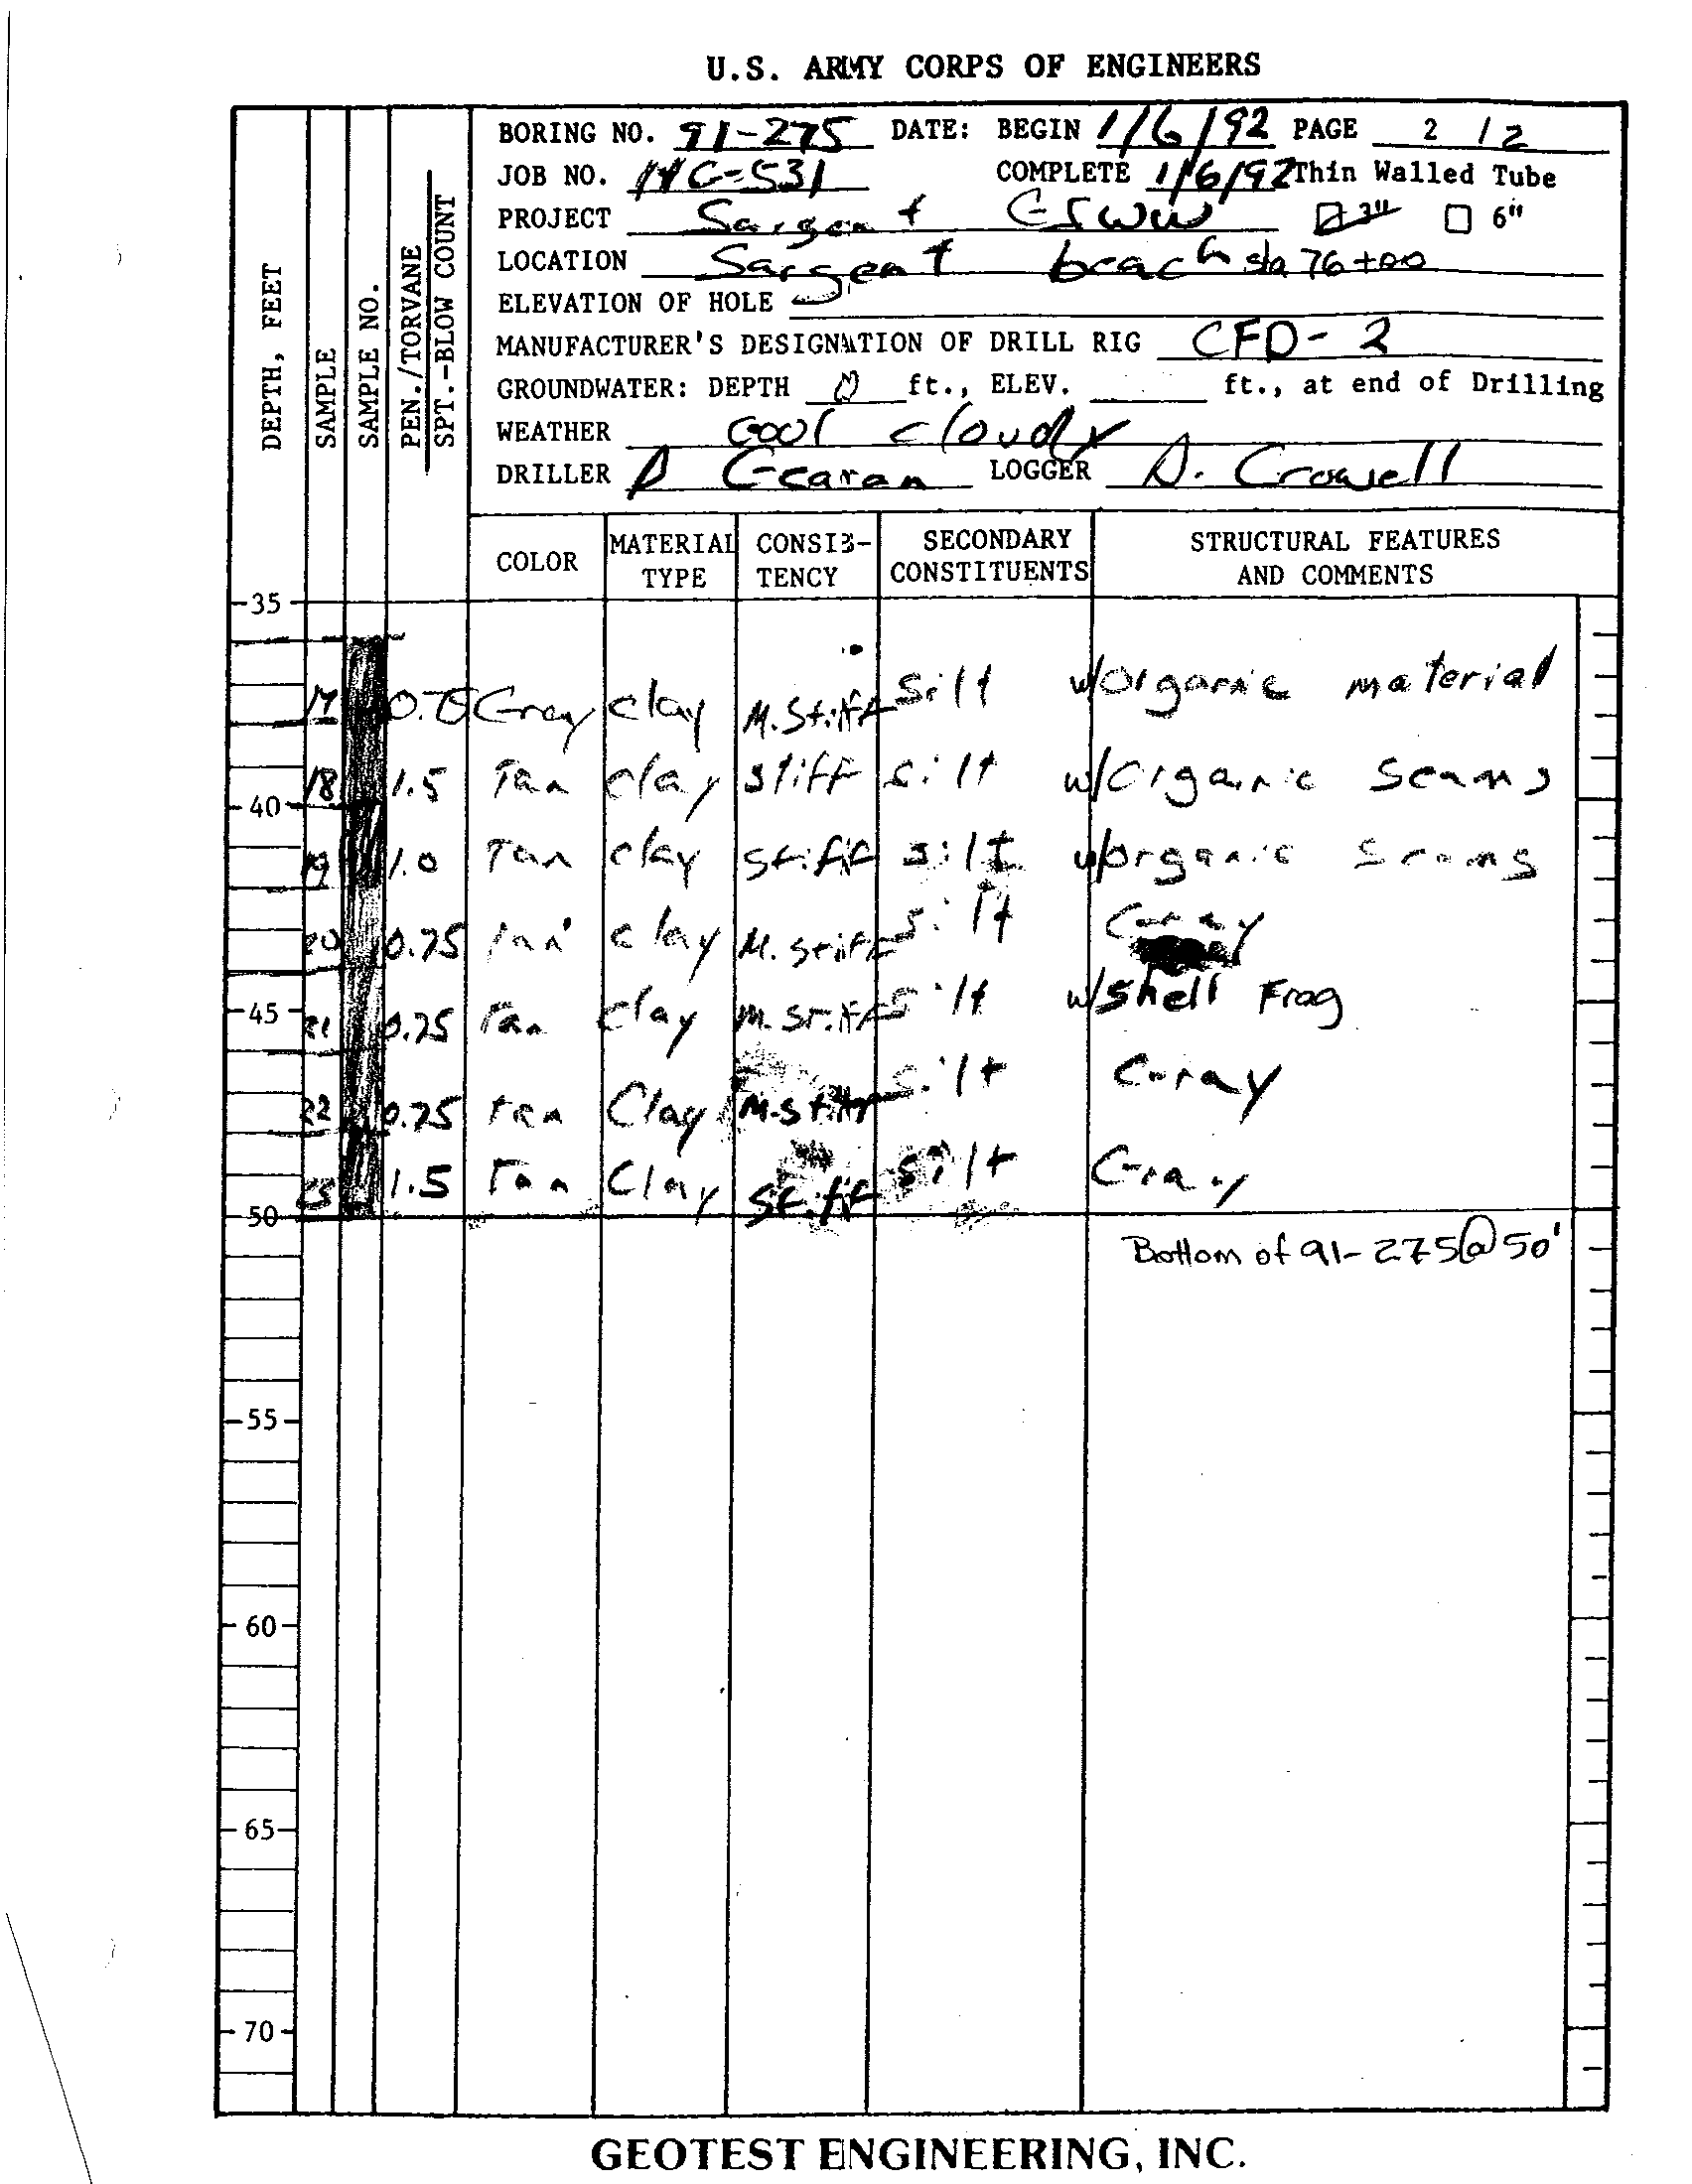 U.S. ARMY CORPS OF ENGINEERS
BORING NO. 91-275 DATE: BEGIN 1/6/92 PAGE 2 / 2
JOB NO. COMPLETE 1/6/92 Thin Walled Tube
PROJECT Sargent GIWW 3" 6"
LOCATION Sargent beach sta 76+00
ELEVATION OF HOLE
MANUFACTURER'S DESIGNATION OF DRILL RIG CFD-2
GROUNDWATER: DEPTH 0 ft., ELEV. ft., at end of Drilling
WEATHER Cool cloudy
DRILLER LOGGER D. Crowell
DEPTH, FEET
SAMPLE
SAMPLE NO.
PEN./TORVANE
SPT.-BLOW COUNT
COLOR MATERIAL TYPE CONSIS-TENCY SECONDARY CONSTITUENTS STRUCTURAL FEATURES AND COMMENTS
35
17 Gray clay M.Stiff Silt w/organic material
18 1.5 Tan clay stiff silt w/Organic Seams
40
19 1.0 Tan clay stiff silt w/organic Seams
20 0.75 Tan clay M. stiff silt Gray
45
21 0.75 Tan clay M. Stiff silt w/shell Frag
22 0.75 tan Clay M.Stiff silt Gray
23 1.5 Tan Clay Stiff silt Gray
50
Bottom of 91-275@50'
55
60
65
70
GEOTEST ENGINEERING, INC.